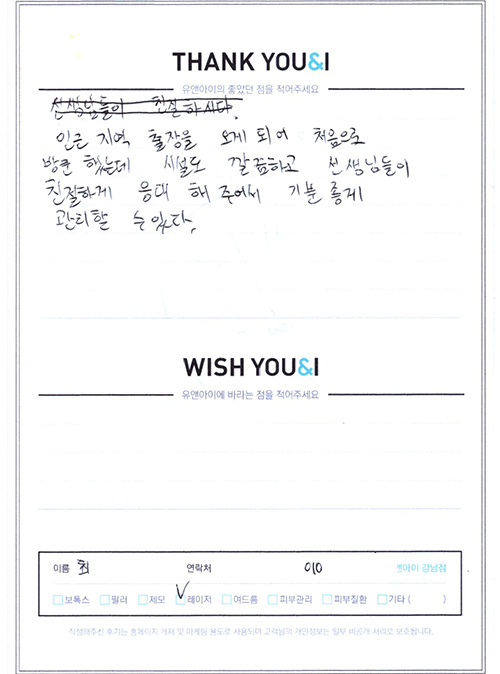 THANK YOU&I
유앤아이의 좋았던 점을 적어주세요
선생님들이 친절하시다.
인근 지역 출장을 오게 되어 처음으로
방문 했는데 시설도 깔끔하고 선생님들이
친절하게 응대 해 주어서 기분 좋게
관리할 수 있다.
WISH YOU&I
유앤아이에 바라는 점을 적어주세요
이름 최 연락처 010 앤아이 강남점
보톡스 필러 제모 레이저 여드름 피부관리 피부질환 기타 ( )
작성해주신 후기는 홈페이지 게재 및 마케팅 용도로 사용되며 고객님의 개인정보는 일부 비공개 처리로 보호됩니다.